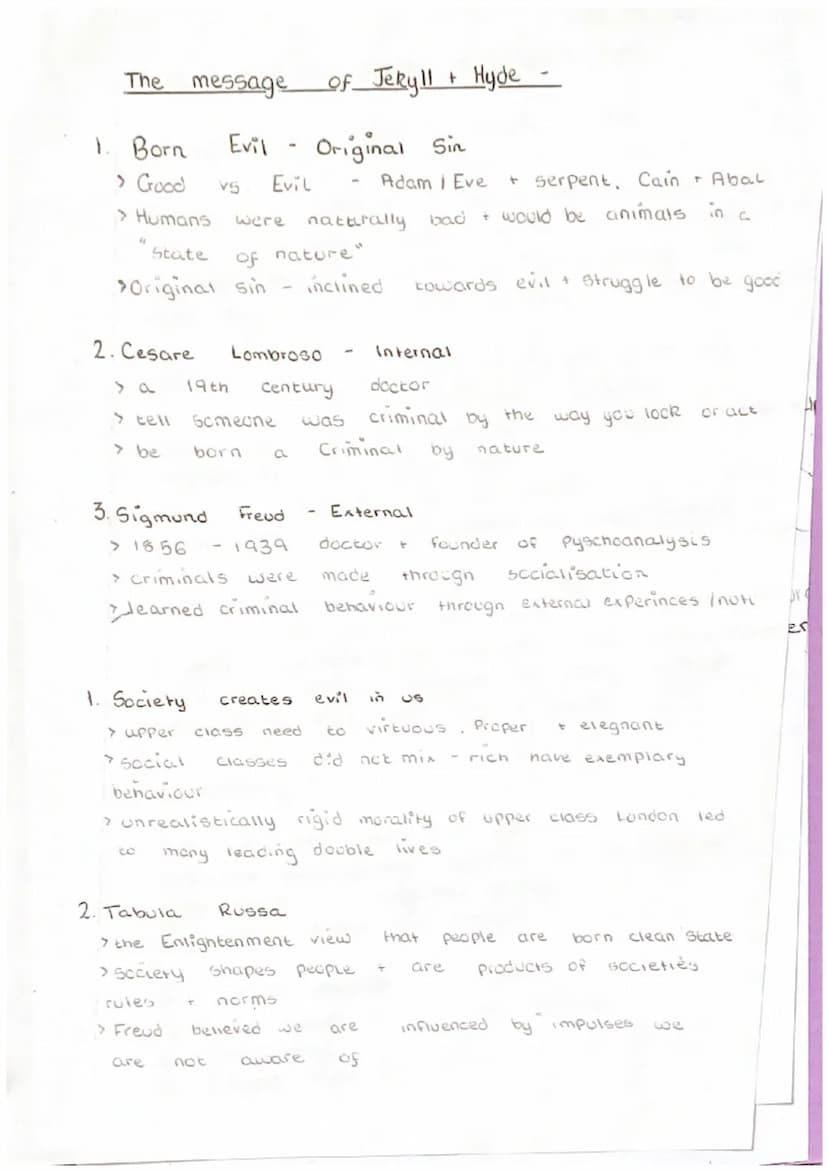 The message of Jekyll + Hyde -
1. Born Evil - Original Sin
> Good vs Evil - Adam / Eve + serpent, Cain + Abal
> Humans were natturally bad + would be animals in a
"State of nature"
> Original sin - inclined towards evil + struggle to be good
2. Cesare Lombroso - Internal
> a 19th century doctor
> tell someone was criminal by the way you look or act
> be born a Criminal by nature
3. Sigmund Freud - External
> 1856 - 1939 doctor + founder of Pyschoanalysis
> criminals were made through socialisation
> learned criminal behaviour through external experinces /
1. Society creates evil in us
> upper class need to virtuous, Proper + elegnant
> social classes did not mix - rich have exemplary
behaviour
> unrealistically rigid morality of upper class London led
to many leading double lives
2. Tabula Russa
> the Enlightenment view that people are born clean State
> society shapes people + are products of societies
rules + norms
> Freud believed we are influenced by impulses we
are not aware of